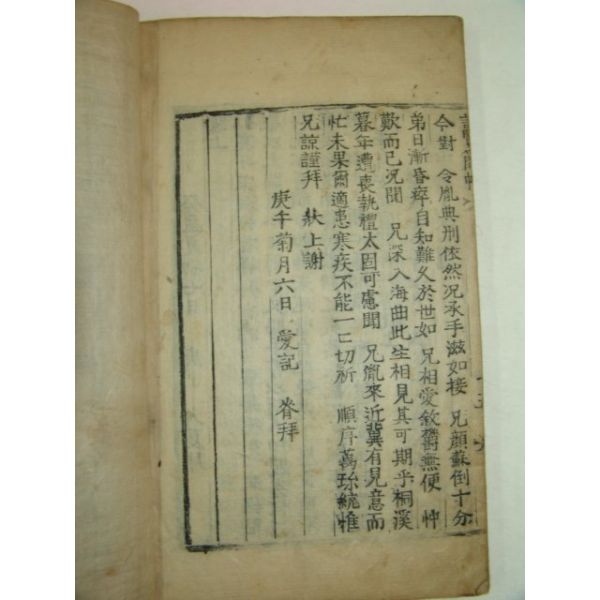 今對 令胤典刑依然況承手滋如接 兄顔蘇倒十分
弟日漸昏瘁自知難久於世如 兄相愛敘欝無便 忡
歎而已况聞 兄深入海曲此生相見其可期乎桐溪
暮年遭喪執禮太固可慮聞 兄胤來近冀有見意而
忙未果爾適患寒疾不能一一切祈 順序萬珎統惟
兄諒謹拜 狀上謝
庚午菊月六日 愛記 眷拜